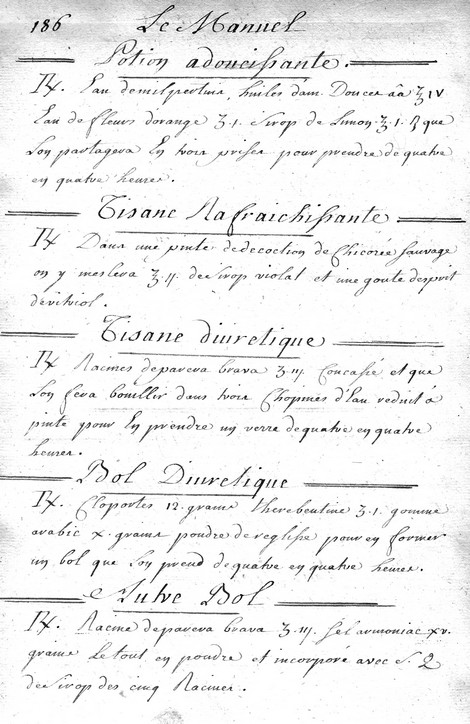 186 Le Manuel
Potion adoucissante.
℞. Eau de milpertuis, huiles d'am. Douces āā ʒ IV
Eau de fleurs dorange ʒ.1. Sirop de Limon ʒ.1. que
Lon partagera En trois prises pour prendre de quatre
en quatre heures.
Tisane Rafraichissante
℞ Dans une pinte de decoction de Chicorée Sauvage
on y meslera ʒ.ij. de Sirop violat et une goute desprit
de vitriol.
Tisane diuretique
℞ Racines de parera brava ʒ.iij. Concassé et que
Lon fera bouillir dans trois Chopines d'Eau reduit à
pinte pour En prendre un verre de quatre en quatre
heures.
Bol Diuretique
℞. Cloportes 12. grains therebentine ʒ.1. gomme
arabic x. grains poudre de reglisse pour en former
un bol que Lon prend de quatre en quatre heures.
Autre Bol
℞. Racine de parera brava ʒ.iij. Sel armoniac xv.
grains Le tout en poudre et incorporé avec S. Q
de Sirop des cinq Racines.